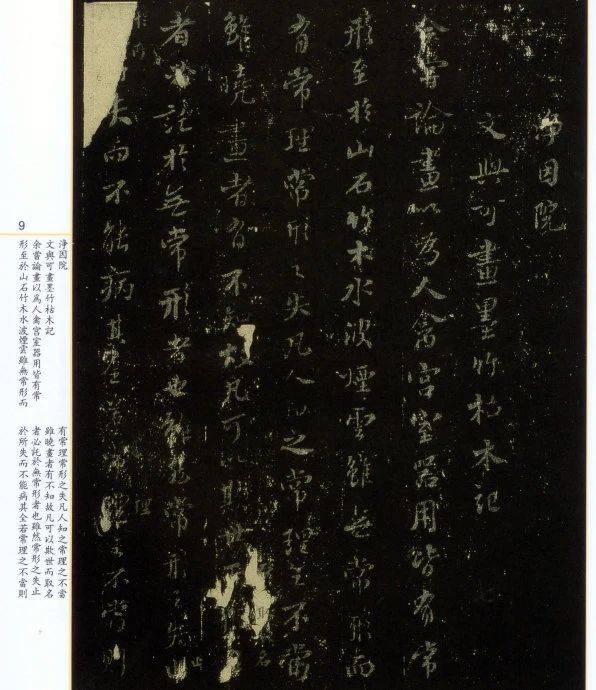 淨因院
文與可畫墨竹枯木記
余嘗論畫以為人禽宮室器用皆有常
形至於山石竹木水波煙雲雖無常形而
有常理常形之失凡人知之常理之不當
雖曉畫者有不知故凡可欺世而
者必託於無常形者也雖然常形之失止
失而不能病其全若常理之不當則
9
淨因院
文與可畫墨竹枯木記
余嘗論畫以爲人禽宮室器用皆有常
形至於山石竹木水波煙雲雖無常形而
有常理常形之失凡人知之常理之不當
雖曉畫者有不知故凡可以欺世而取名
者必託於無常形者也雖然常形之失止
於所失而不能病其全若常理之不當則